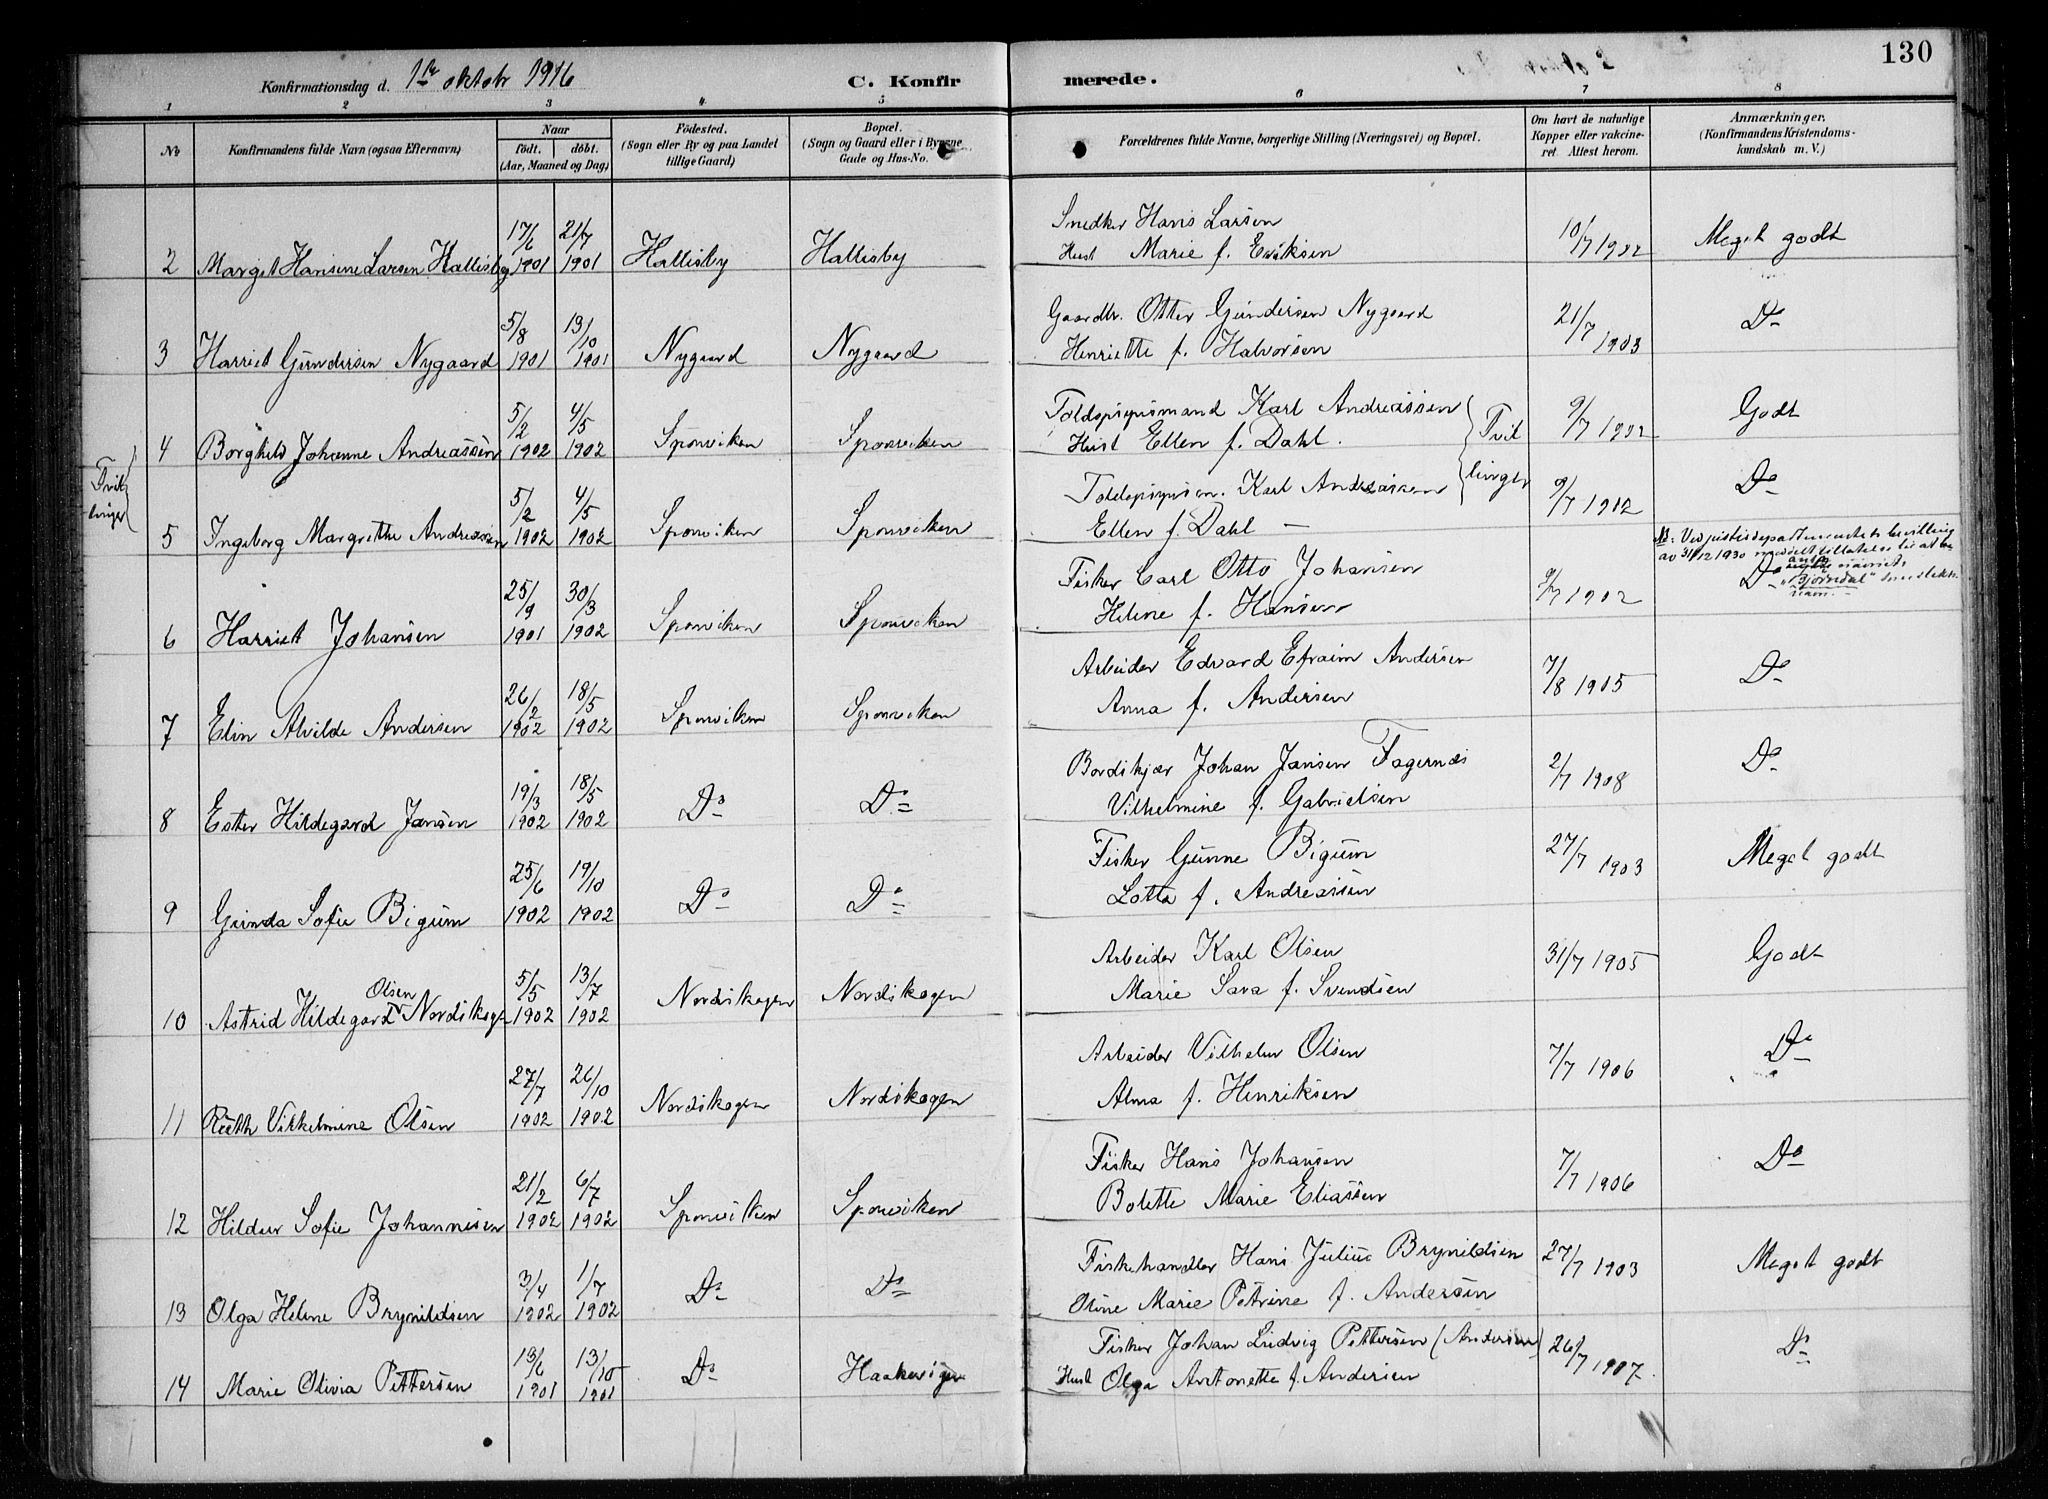 130
Konfirmationsdag d. 1ste oktobr 1916
C. Konfirmerede.
1 2 3 4 5 6 7 8
No
Konfirmandens fulde Navn (ogsaa Efternavn)
Naar
født. døbt.
(Aar, Maaned og Dag)
Fødested.
(Sogn eller By og paa Landet tillige Gaard)
Bopæl.
(Sogn og Gaard eller i Byerne Gade og Hus-No.
Forældrenes fulde Navne, borgerlige Stilling (Næringsvei) og Bopæl.
Om havt de naturlige Kopper eller vakcineret. Attest herom.
Anmærkninger.
(Konfirmandens Kristendomskundskab m. V.)
2 Margit Hansine Larsen Hallisby 17/6 1901 21/7 1901 Hallisby Hallisby
Snedker Hans Larsen
Hust Marie f. Eriksen
10/7 1902 Meget godt
3 Harriet Gundersen Nygaard 5/8 1901 13/10 1901 Nygaard Nygaard
Gaardbr. Otter Gundersen Nygaard
Henriette f. Halvorsen
21/7 1903 Do
Tvillinger
4 Borghild Johanne Andreassen 5/2 1902 4/5 1902 Sponviken Sponviken
Toldopsynsmand Karl Andreassen
Hust Ellen f. Dahl.
Tvillinger
9/7 1902 Godt
5 Ingeborg Margrethe Andreassen 5/2 1902 4/5 1902 Sponviken Sponviken
Toldopsynsm. Karl Andreassen
Ellen f. Dahl –
9/7 1902 Do
6 Harriet Johansen 25/9 1901 30/3 1902 Sponviken Sponviken
Fisker Carl Otto Johansen
Helene f. Hansen
9/7 1902 Do
NB: Ved justisdepartementets bevilling
av 31/12 1930 meddelt tillatelse til at
anta navnet
"Bjørndal" som slekts-
navn.
7 Elin Alvilde Andersen 26/2 1902 18/5 1902 Sponviken Sponviken
Arbeider Edvard Efraim Andersen
Anna f. Andersen
7/8 1905 Do
8 Ester Hildegard Jansen 19/3 1902 18/5 1902 Do Do
Bordskjær Johan Jansen Fagernæs
Vilhelmine f. Gabrielsen
2/7 1908 Do
9 Gunda Sofie Bigum 25/6 1902 19/10 1902 Do Do
Fisker Gunne Bigum
Lotta f. Andreassen
27/7 1903 Meget godt
10 Astrid Hildegard Olsen Nordskogen 5/5 1902 13/7 1902 Nordskogen Nordskogen
Arbeider Karl Olsen
Marie Sara f. Svendsen
31/7 1905 Godt
11 Ruth Vilhelmine Olsen 27/7 1902 26/10 1902 Nordskogen Nordskogen
Arbeider Vilhelm Olsen
Alma f. Henriksen
7/7 1906 Do
12 Hildur Sofie Johannesen 21/2 1902 6/7 1902 Sponviken Sponviken
Fisker Hans Johansen
Bolette Marie Eliassen
7/7 1906 Do
13 Olga Helene Brynildsen 3/4 1902 1/7 1902 Do Do
Fiskehandler Hans Julius Brynildsen
Oline Marie Petrine f. Andersen
27/7 1903 Meget godt
14 Marie Olivia Pettersen 13/6 1901 13/10 1901 Do Haakevigen
Fisker Johan Ludvig Pettersen (Andersen)
Hust Olga Antonette f. Andersen
26/7 1907. Do